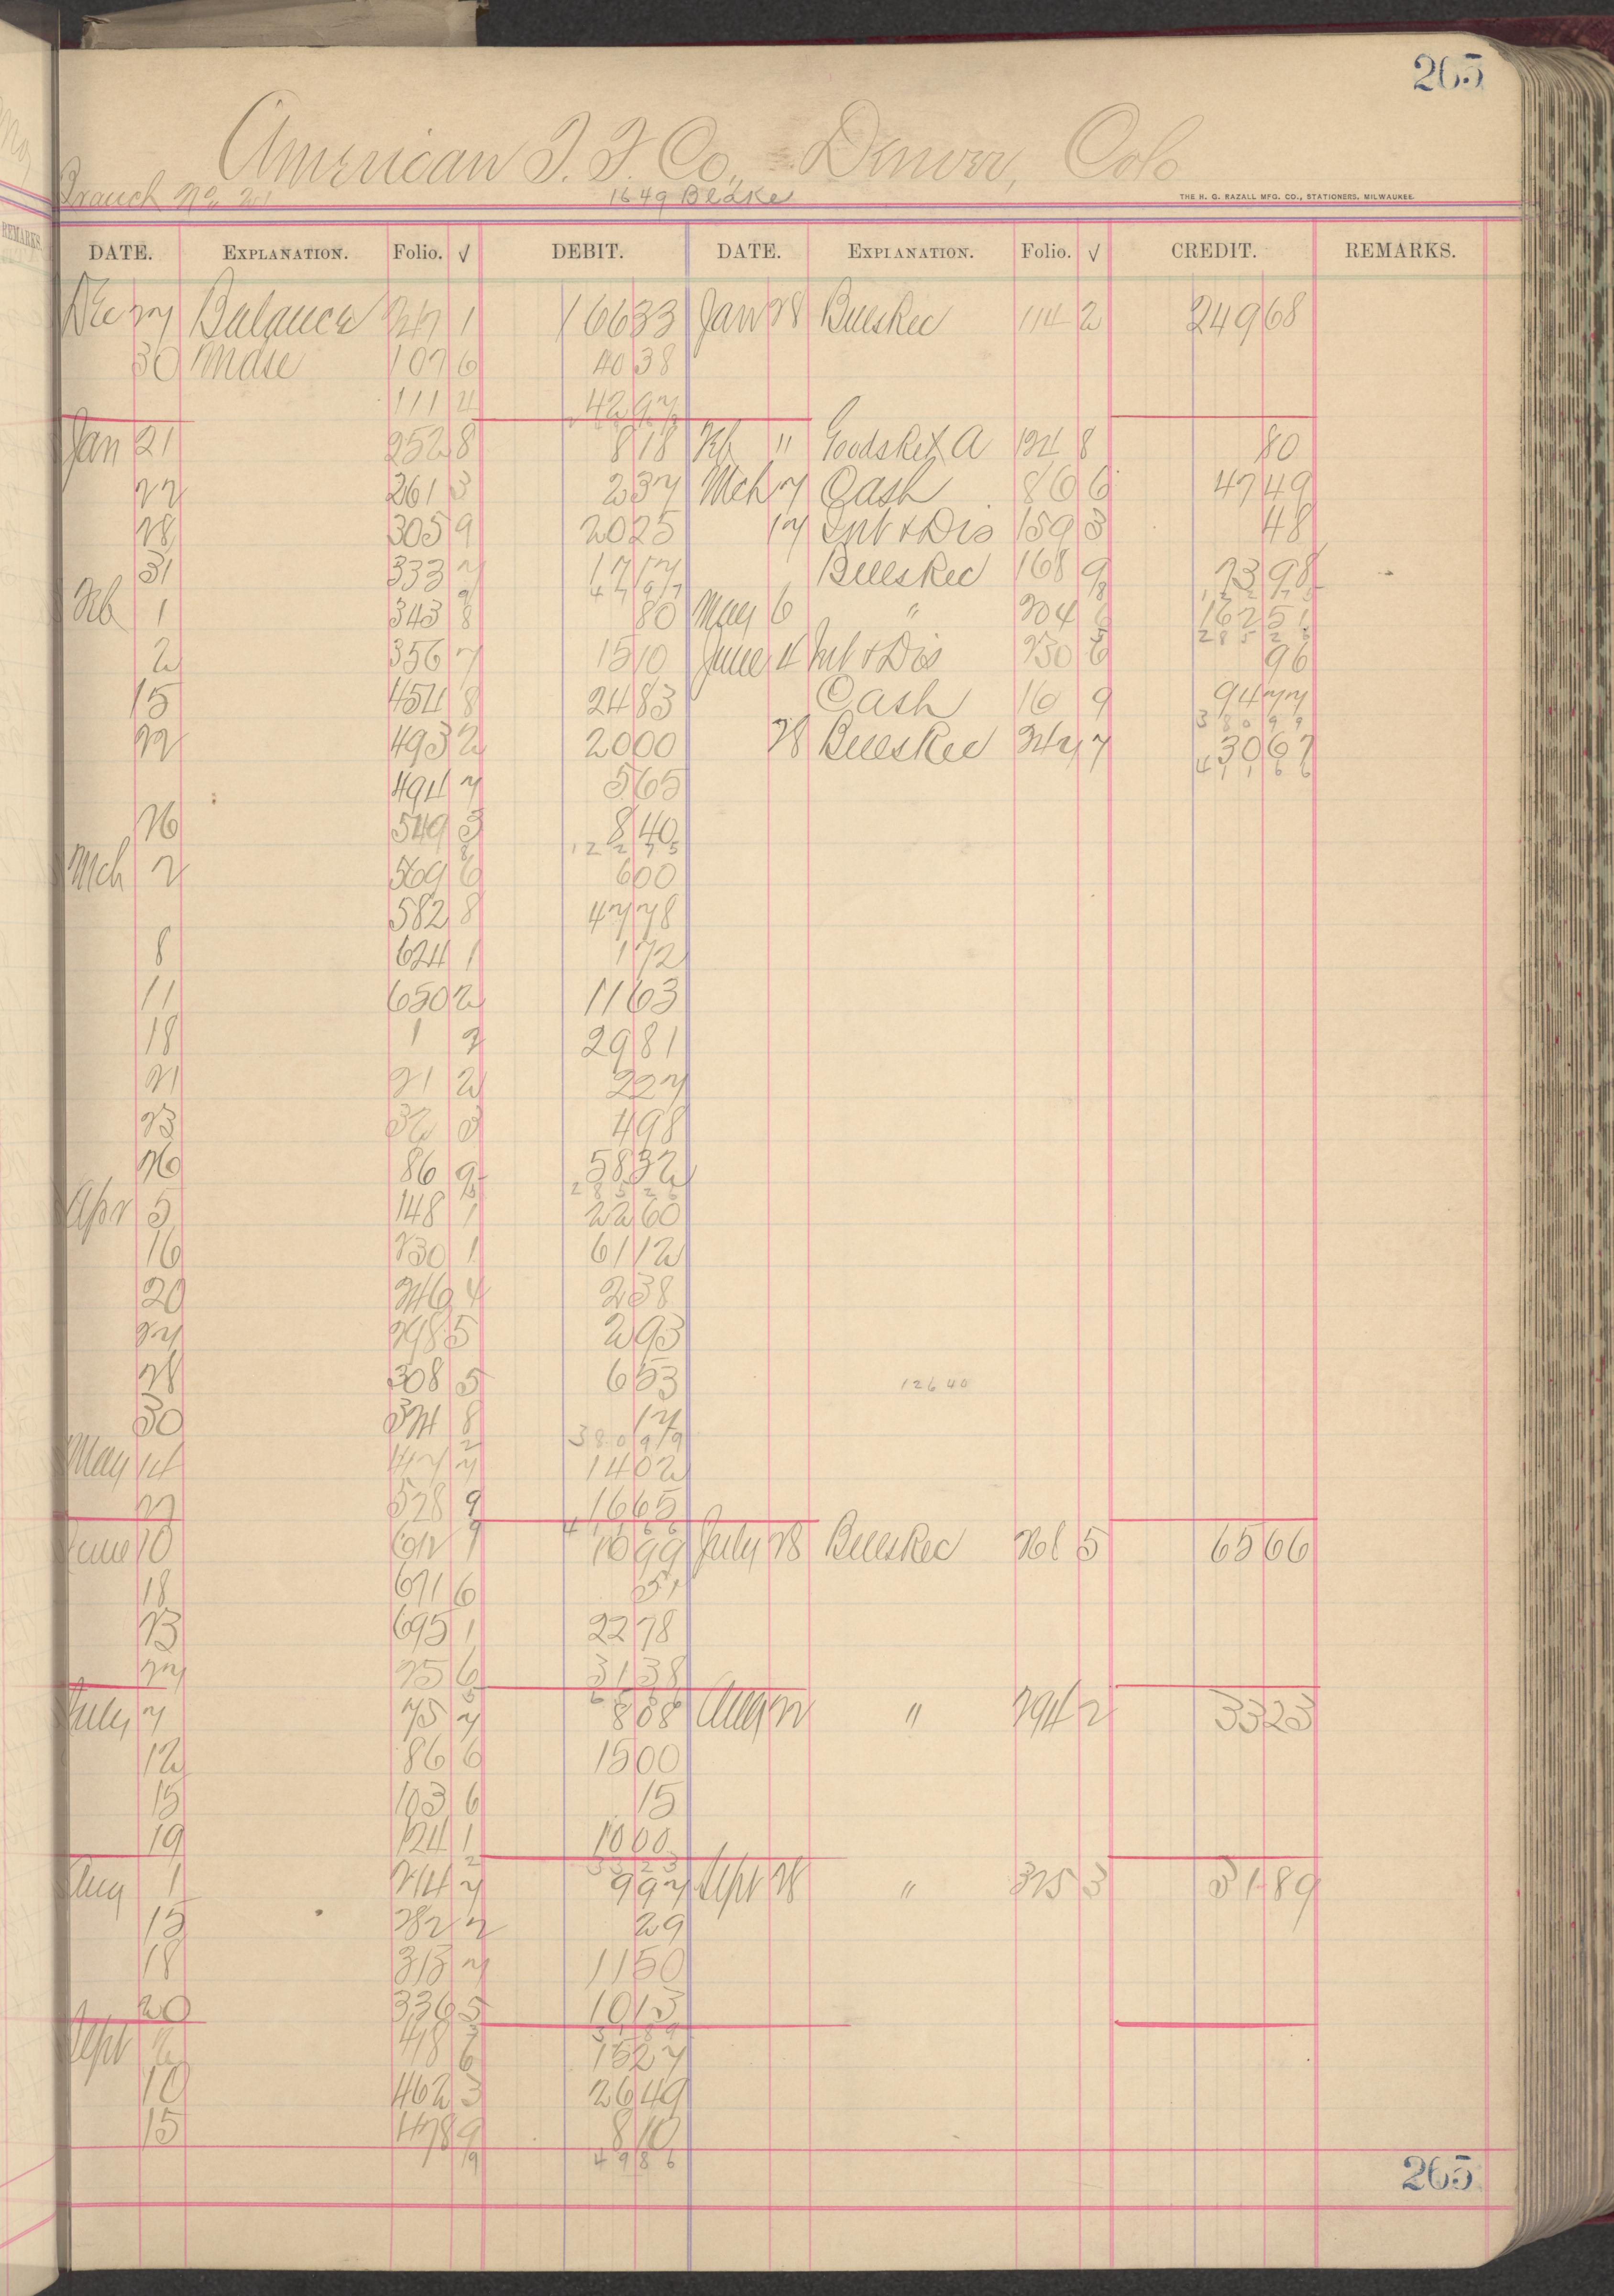 265
American T. F. Co., Denver, Colo
Branch No. 1649 Blake
THE H. G. RAZALL MFG. CO., STATIONERS, MILWAUKEE.
DATE. EXPLANATION. Folio. √ DEBIT. DATE. EXPLANATION. Folio. √ CREDIT. REMARKS.
Dec 27 Balance 247 1 166 33 Jan 28 BillsRec 114 2 249 68
30 Mdse 107 6 40 38
111 4 42 97
Jan 21 252 8 8 18 Feb " GoodsRet A 124 8 80
22 261 3 2 37 Mch 7 Cash 86 6 47 49
28 305 9 20 25 17 Int & Dis 159 3 48
31 333 7 17 17 BillsRec 168 9 73 98
47 97
Feb 1 343 8 80 May 6 " 204 6 162 51
285 26
2 356 7 15 10 June 4 Int & Dis 230 6 96
15 454 8 24 83 Cash 16 9 94 77
380 99
22 493 2 20 00 28 BillsRec 347 7 30 67
411 66
494 7 5 65
26 549 3 8 40
122 75
Mch 2 569 6 6 00
582 8 47 78
8 624 1 1 72
11 650 2 11 63
18 1 2 29 81
21 21 2 2 27
23 32 3 4 98
26 86 9 58 32
285 26
Apr 5 148 1 22 60
16 230 1 61 12
20 246 4 2 38
27 298 5 2 93
28 308 5 6 53 126 40
30 324 8 17
380 99
May 14 447 7 14 02
27 528 9 16 65
411 66
June 10 612 9 10 99 July 28 BillsRec 261 5 65 66
18 671 6 51
23 695 1 22 78
27 25 6 31 38
July 7 75 7 8 08 Aug 22 " 294 2 33 23
12 86 6 15 00
15 103 6 15
19 124 1 10 00
33 23
Aug 1 214 7 9 97 Sept 28 " 325 3 31 89
15 282 2 29
18 313 7 11 50
20 336 5 10 13
31 89
Sept 2 418 6 15 27
10 462 3 26 49
15 478 9 8 10
49 86
265